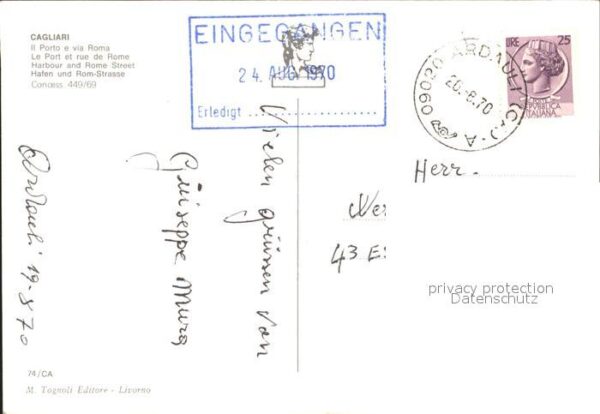 CAGLIARI
Il Porto e via Roma
Le Port et rue de Rome
Harbour and Rome Street
Hafen und Rom-Strasse
Concess 449/69
EINGEGANGEN
24. AUG. 1970
Erledigt
LIRE 25
REPUBBLICA
ITALIANA
09020 ARDAULI (CA) - A
20.8.70
Vielen grüssen von
Giuseppe Murg
Ardauli 19-8 70
Herr.
43 Es
privacy protection
Datenschutz
74/CA
M. Tognoli Editore - Livorno